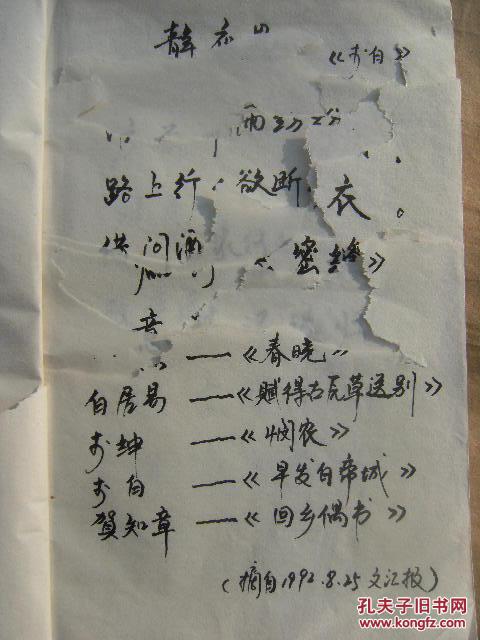 《李白》
雨
路上行 欲断 衣。
问酒 《蜜蜂》
——《春晓
白居易 ——《赋得古原草送别》
李绅 ——《悯农》
李白 ——《早发白帝城》
賀知章 ——《回乡偶书》
(摘自1992.8.25 文汇报)
孔夫子旧书网
www.kongfz.com